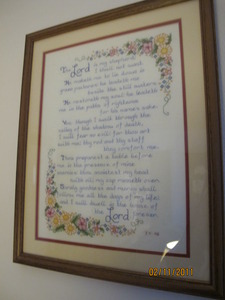 The Lord is my shepherd
I shall not want
He maketh me to lie down in
green pastures: he leadeth me
beside the still waters
He restoreth my soul: he leadeth
me in the paths of righteousness
for his name's sake
Yea, though I walk through the
valley of the shadow of death,
I will fear no evil: for thou art
with me; thy rod and thy staff
they comfort me.
Thou preparest a table before
me in the presence of mine
enemies: thou anointest my head
with oil; my cup runneth over.
Surely goodness and mercy shall
follow me all the days of my life:
and I will dwell in the house of
the Lord forever.
02/11/2011